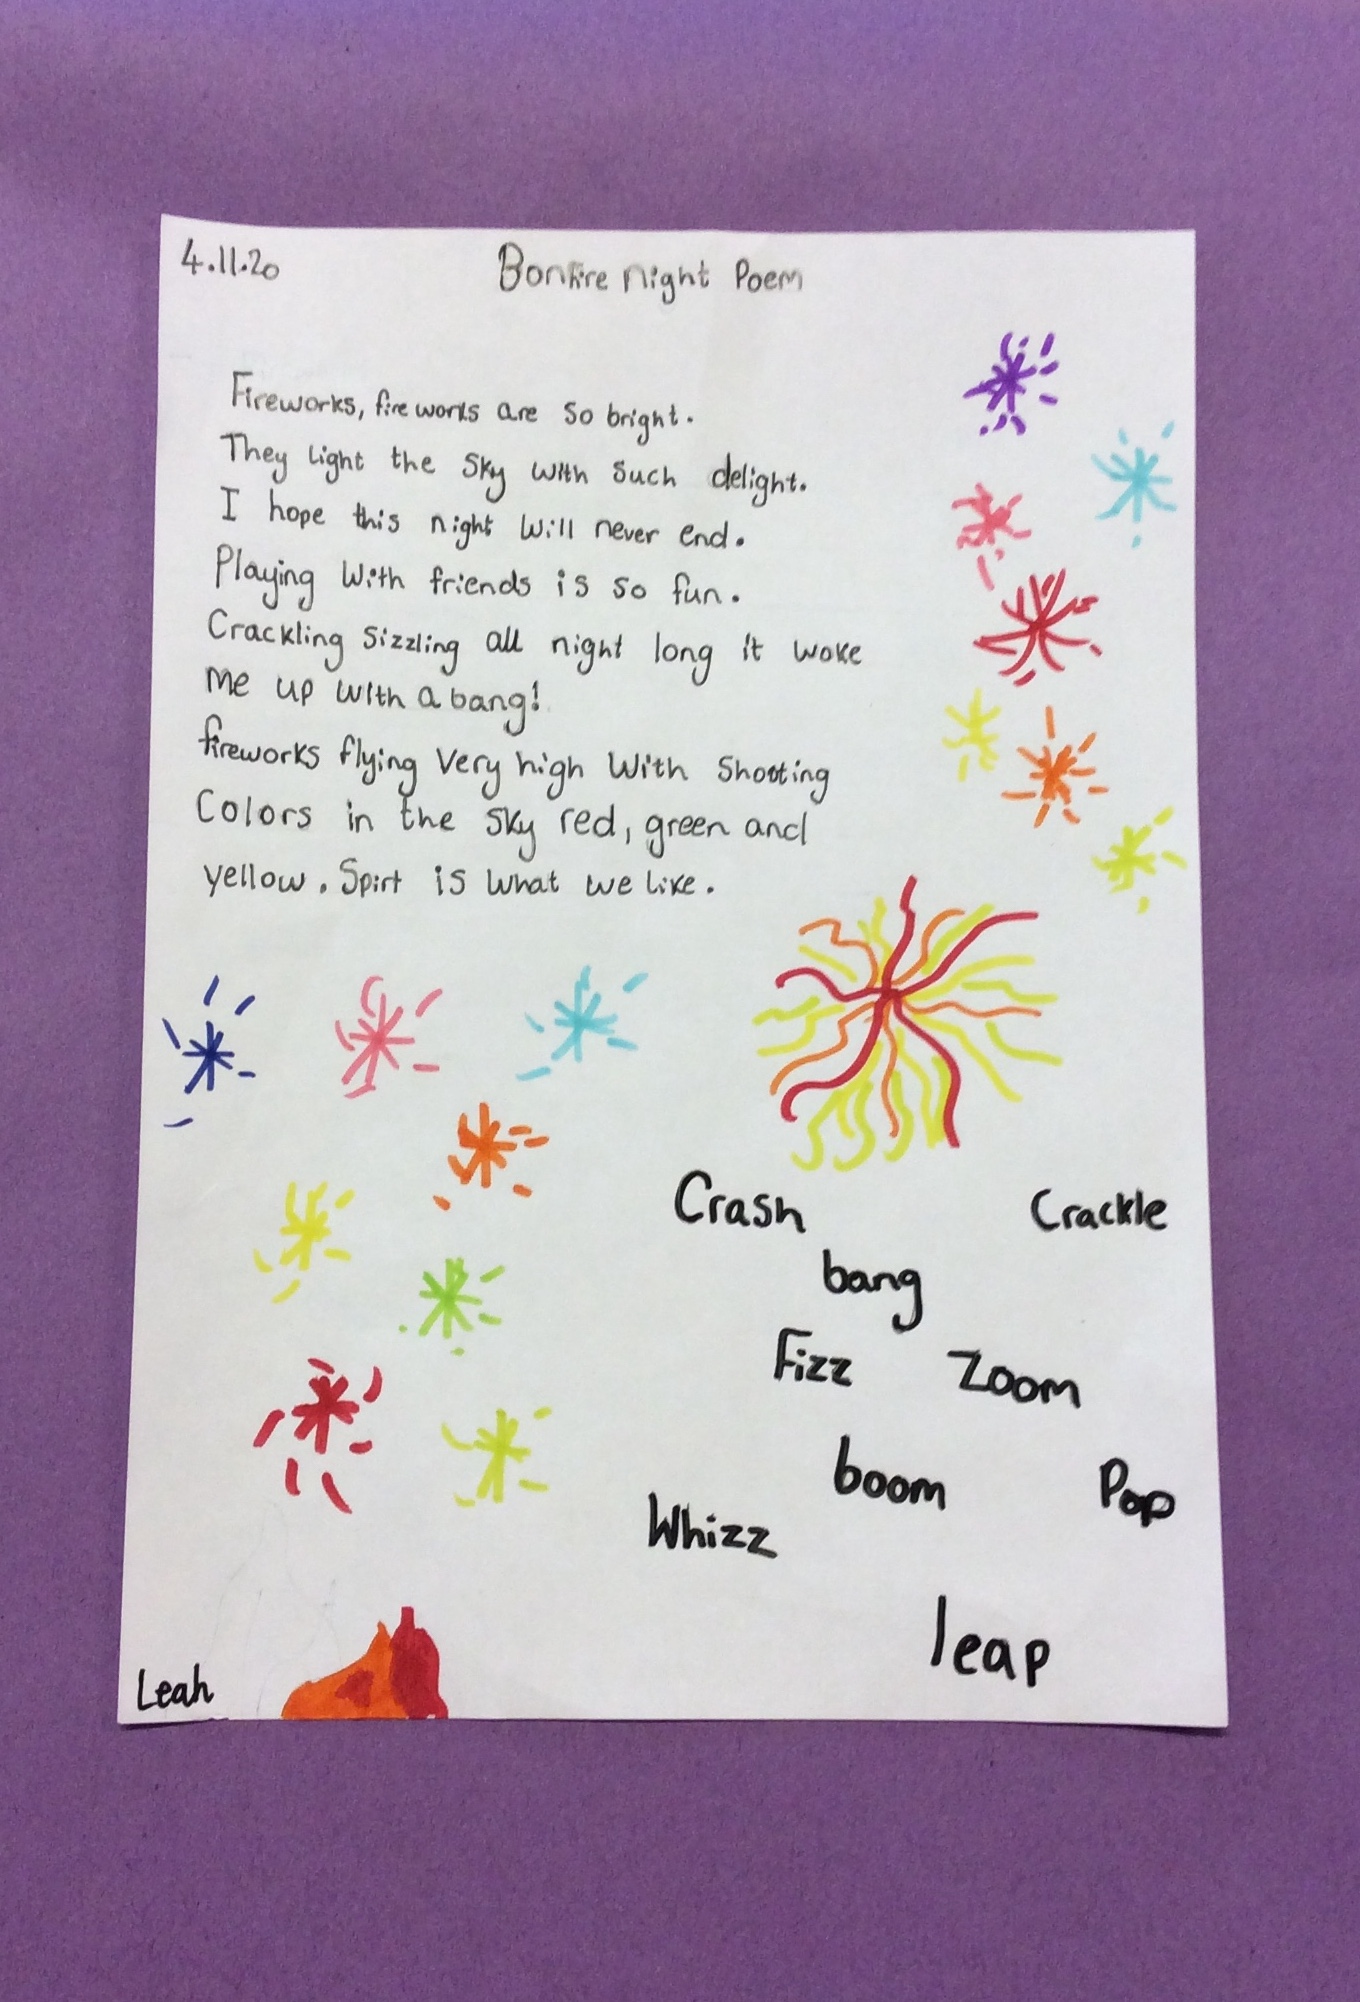 4.11.20 Bonfire night Poem
Fireworks, fireworks are so bright.
They light the sky with such delight.
I hope this night will never end.
Playing with friends is so fun.
Crackling sizzling all night long it woke
me up with a bang!
fireworks flying very high with shooting
Colors in the sky red, green and
yellow. Spirt is what we like.
Crash Crackle
bang
Fizz Zoom
boom Pop
Whizz
leap
Leah